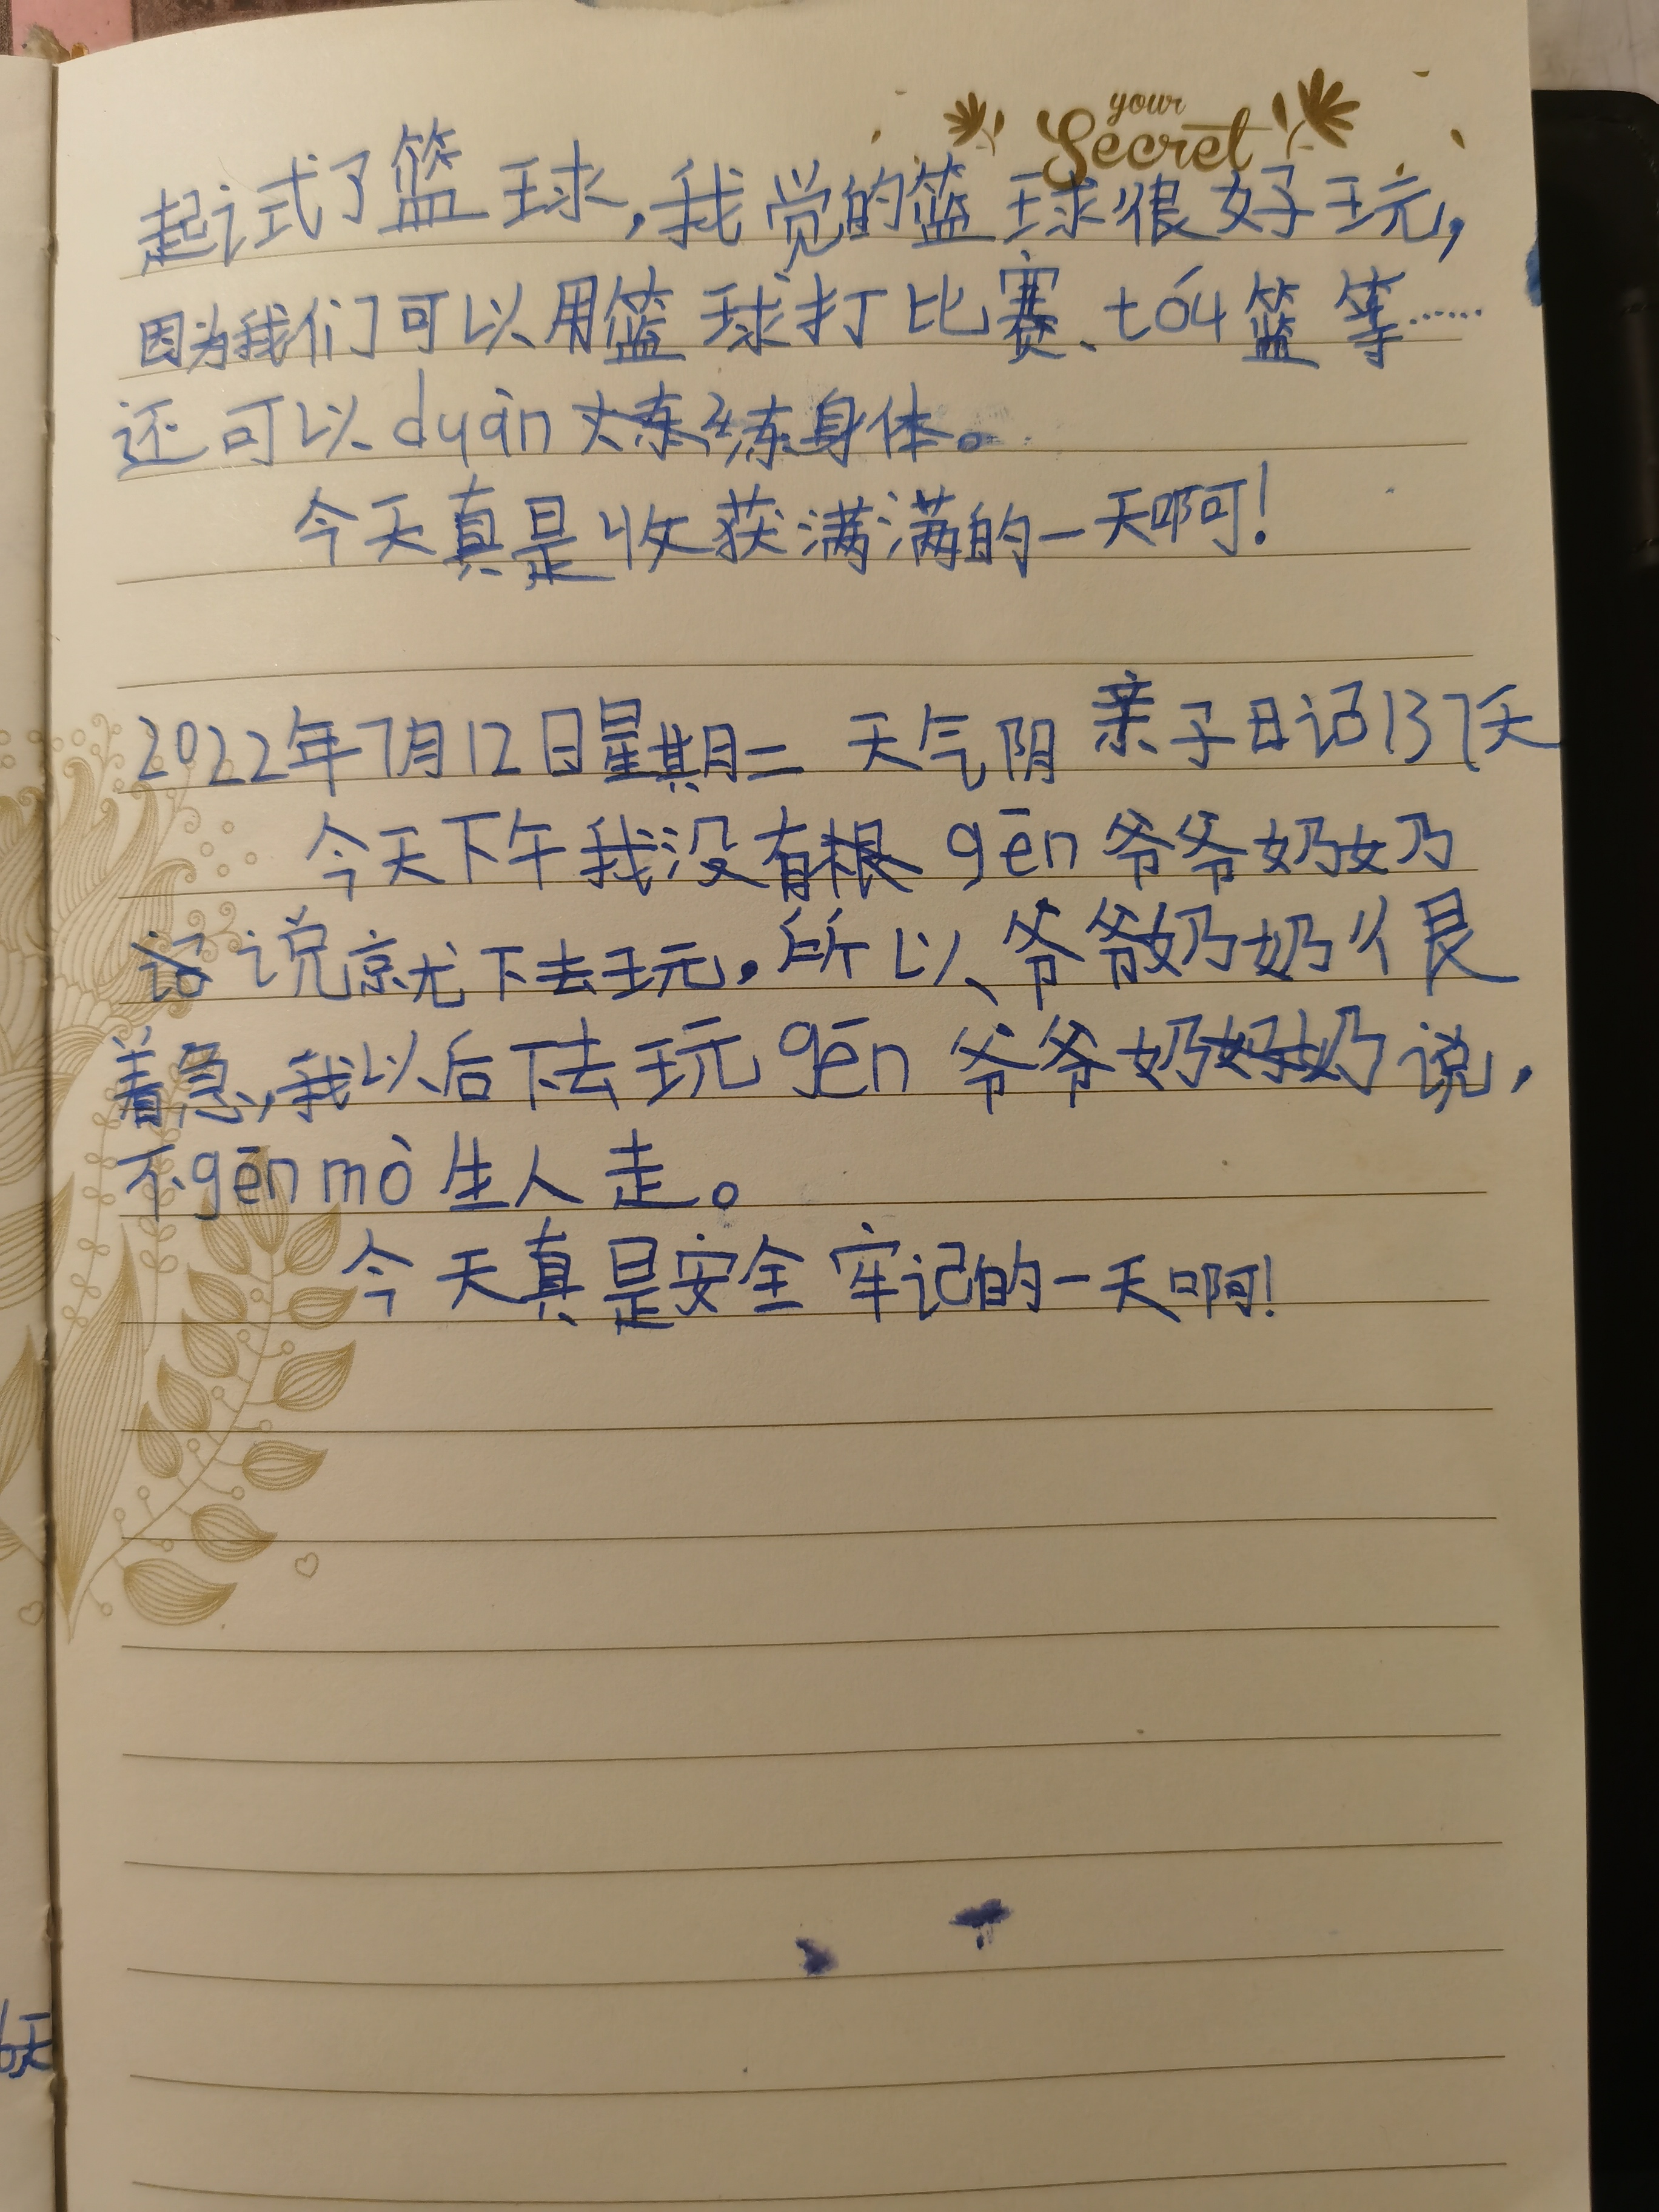 your
Secret
起试了篮球,我觉的篮球很好玩,
因为我们可以用篮球打比赛、tóu篮等……
还可以duàn炼身体。
今天真是收获满满的一天啊!
2022年7月12日星期二 天气阴 亲子日记137天
今天下午我没有gēn爷爷奶奶
说就下去玩,所以爷爷奶奶很
着急,我以后下去玩gēn爷爷奶奶说,
不gēn mò生人走。
今天真是安全牢记的一天啊!
天